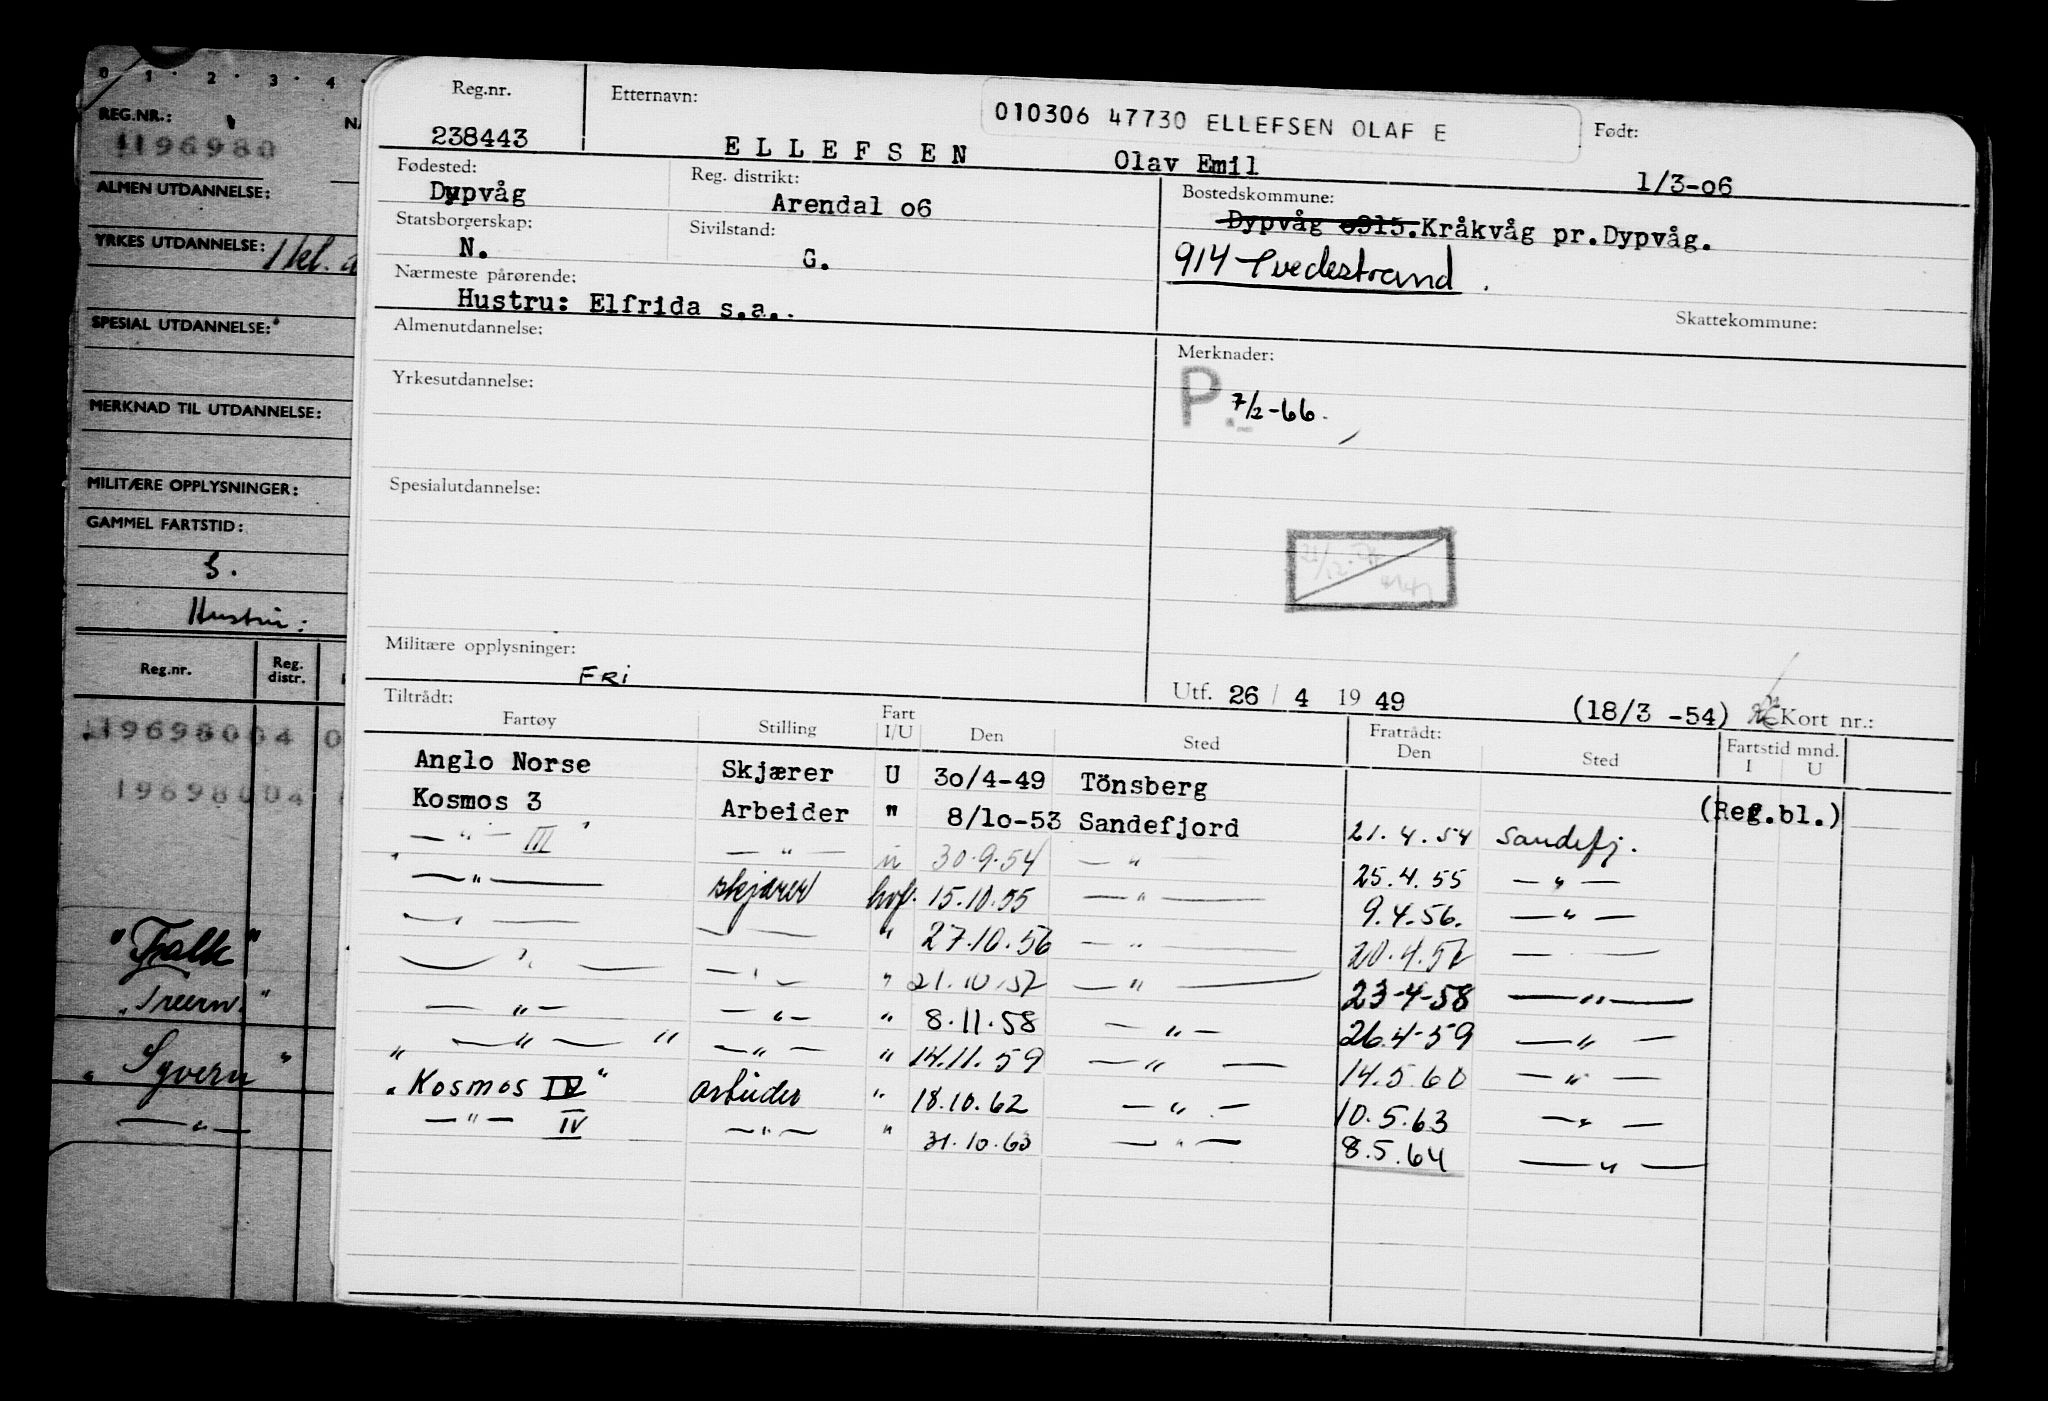 0 1 2 3 4
REG.NR.:
1196980
ALMEN UTDANNELSE:
YRKES UTDANNELSE: 1 kl. a
SPESIAL UTDANNELSE:
MERKNAD TIL UTDANNELSE:
MILITÆRE OPPLYSNINGER:
GAMMEL FARTSTID:
S.
Hustru:
Reg.nr. Reg. distr.
119698004 0
19698004
"Falk"
"Treern"
"Syvern"
— " —
Reg.nr. Etternavn: 010306 47730 ELLEFSEN OLAF E Født:
238443 ELLEFSEN Olav Emil 1/3-06
Fødested: Reg. distrikt: Bostedskommune:
Dypvåg Arendal 06 Dypvåg 0915. Kråkvåg pr. Dypvåg.
Statsborgerskap: Sivilstand:
N. G. 914 Tvedestrand.
Nærmeste pårørende:
Hustru: Elfrida s.a.
Skattekommune:
Almenutdannelse: Merknader:
P. 7/2-66.
Yrkesutdannelse:
Spesialutdannelse:
Militære opplysninger:
FRI
Utf. 26 / 4 1949 (18/3 -54) Kort nr.:
Tiltrådt: Fratrådt: Fartstid mnd.
Fartøy Stilling Fart I/U Den Sted Den Sted I U
Anglo Norse Skjærer U 30/4-49 Tönsberg (Reg.bl.)
Kosmos 3 Arbeider " 8/10-53 Sandefjord 21.4.54 Sandefj.
— " — III — " — u 30.9.54 — " 25.4.55 — " —
— " — skjærer hvf. 15.10.55 — " — 9.4.56. — " —
— " — — — " 27.10.56 — " — 20.4.57 — —
— " — — " — " 21.10.57 — " — 23-4-58 — " —
— " — — " — " 8.11.58 — " — 26.4-59 — " —
" — " — " — " — " 14.11.59 — " — 14.5.60 — " —
"Kosmos IV" arbeider " 18.10.62 — " — 10.5.63 — " —
— " — IV — " — " 31.10.63 — " — 8.5.64 — " —